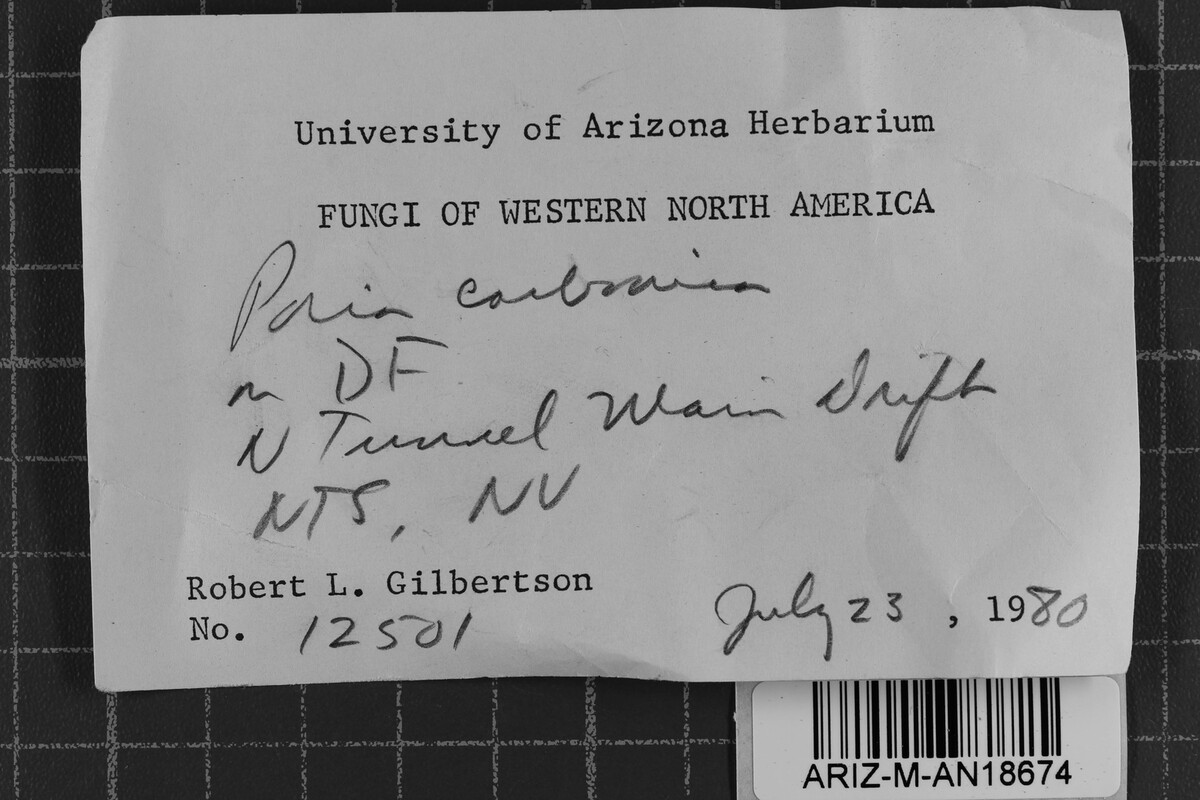 University of Arizona Herbarium
FUNGI OF WESTERN NORTH AMERICA
Poria carbonica
on DF
N Tunnel Main Drift
NTS, NV
Robert L. Gilbertson
No. 12501
July 23, 1980
ARIZ-M-AN18674